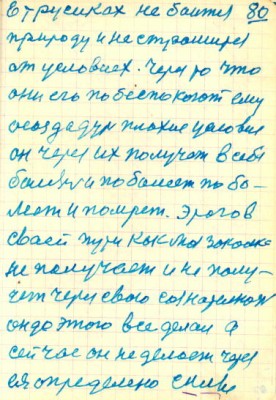 в трусиках не боится 80
природу и не страшится
от условиех. Через то что
они его побеспокоют ему
создадут плохие условия
он через их получит в себе
и поболеет по бо-
леет и помрет. Эготов
своей пути как закалка
не получает и не полу-
чет через свою
он до этого все делал а
сейчас он не делает через
определено